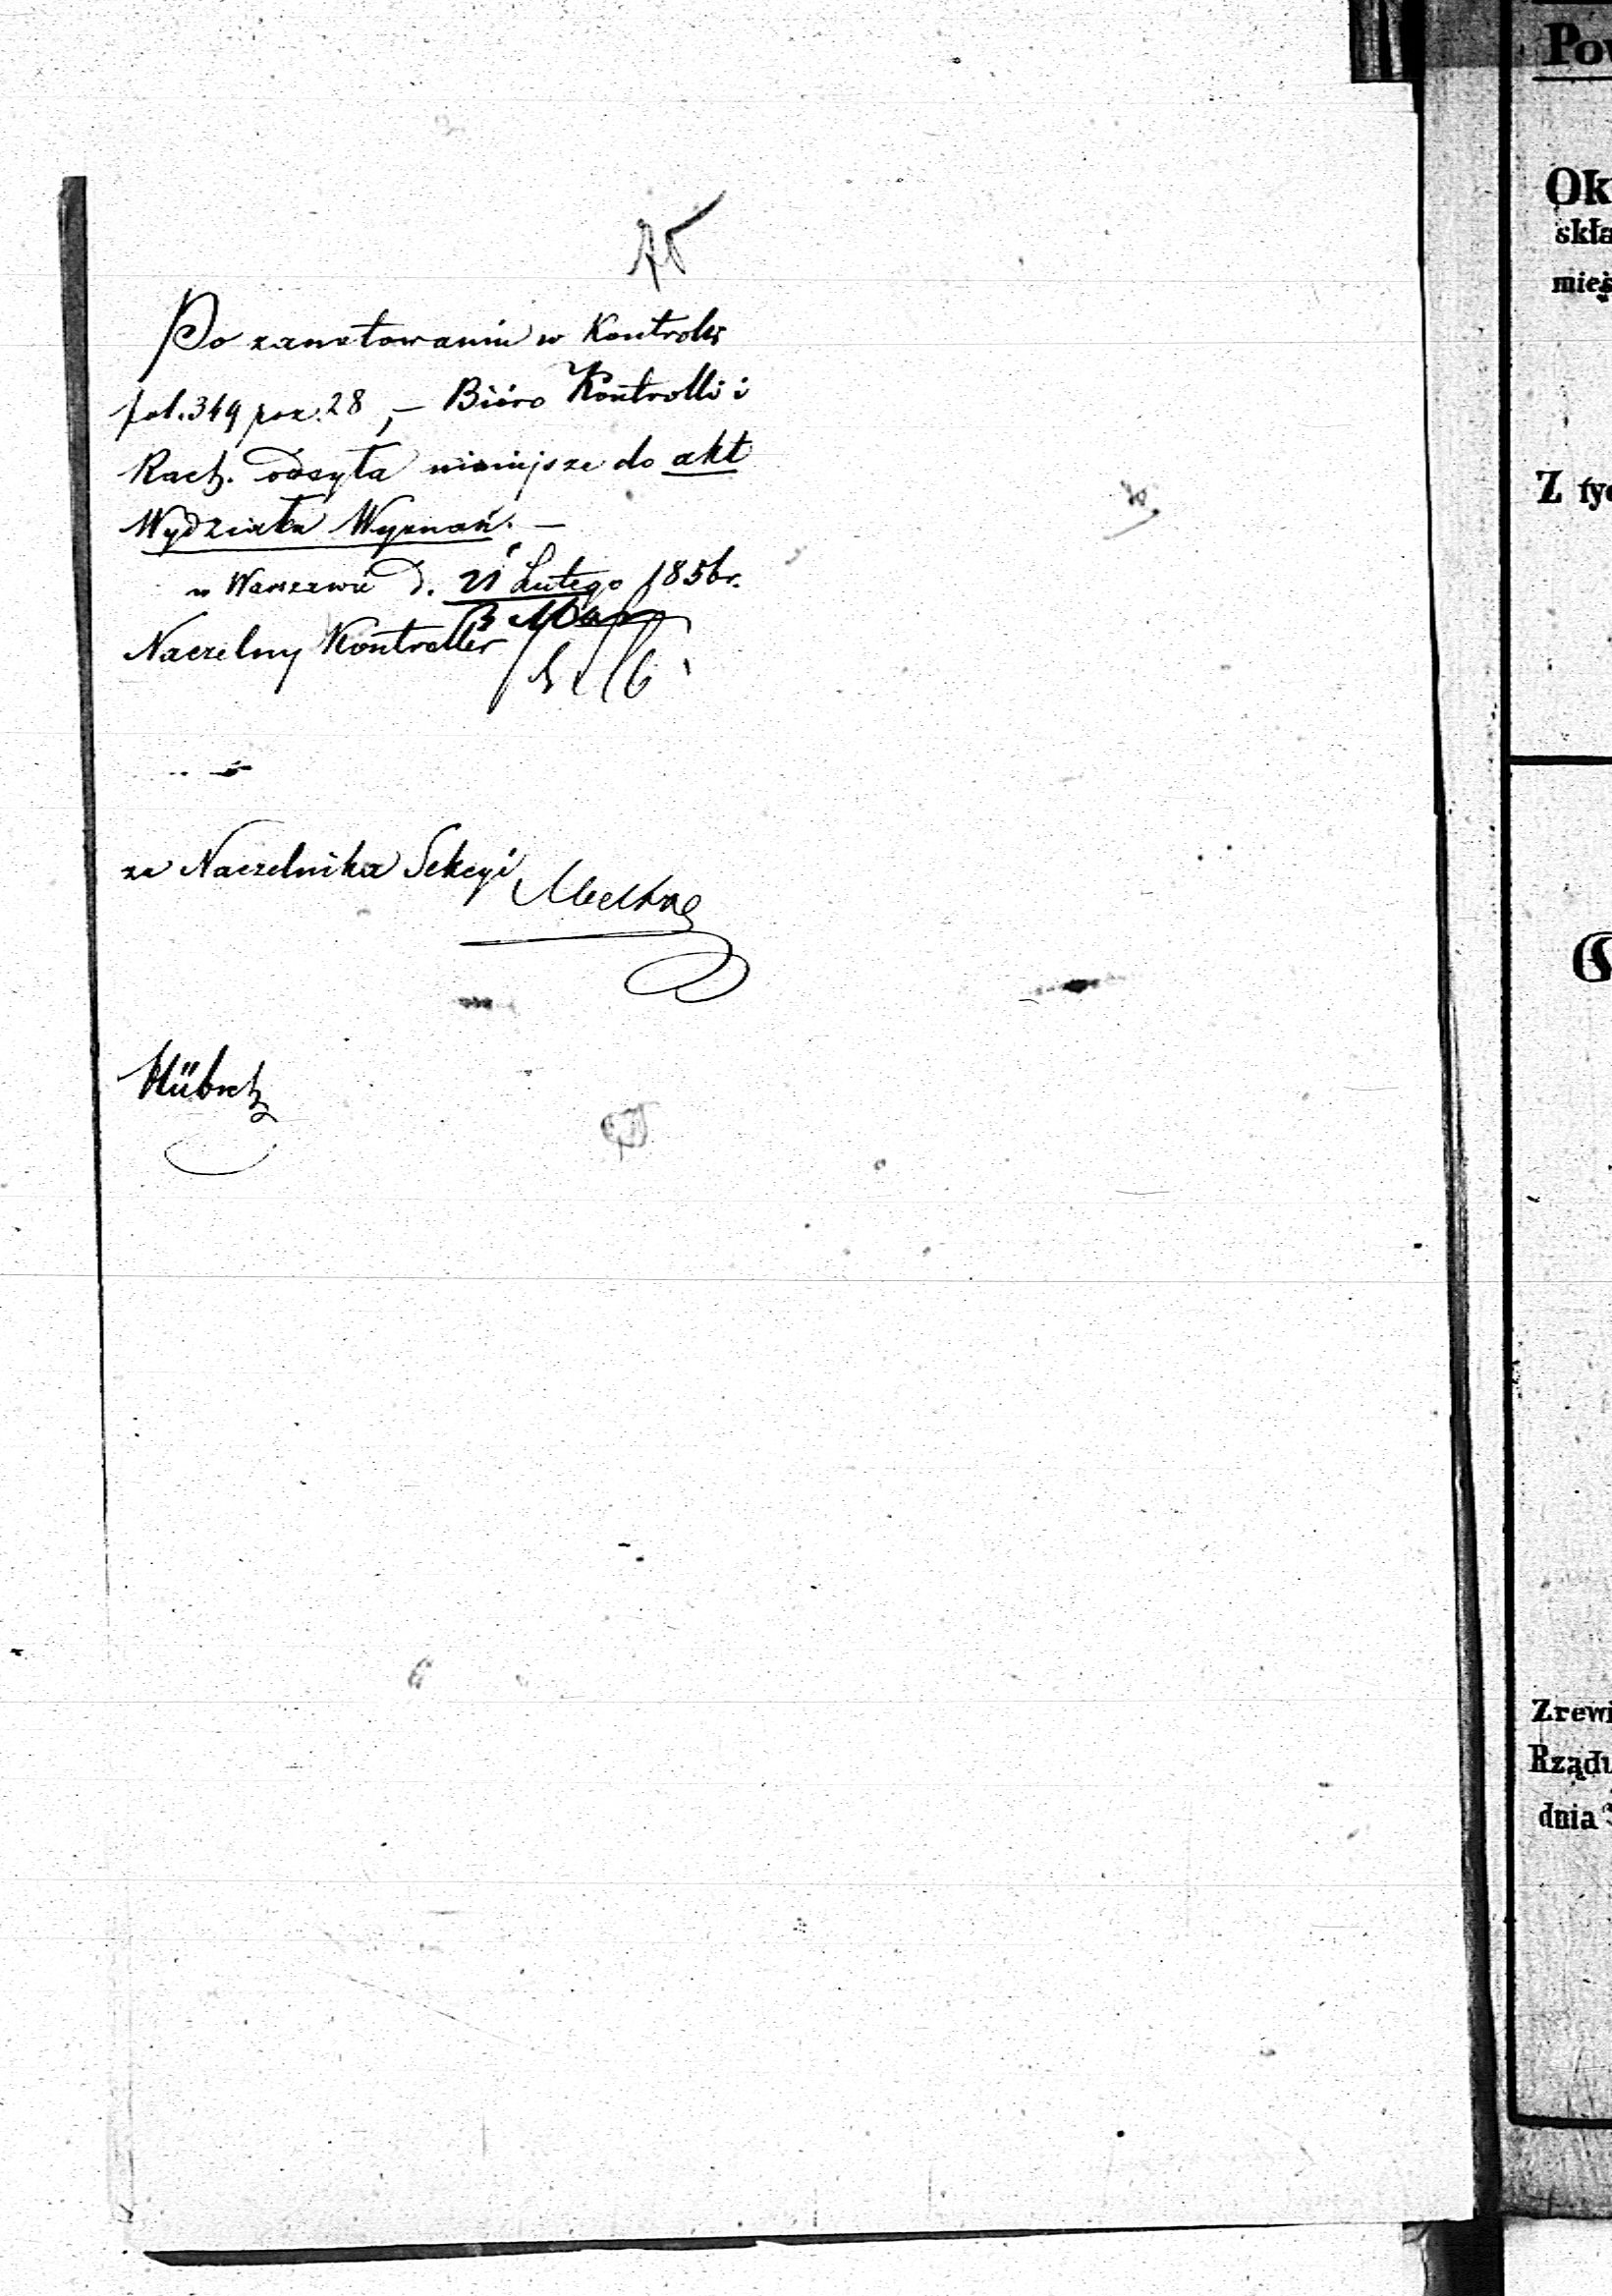 Po zanotowaniu w Kontroli
fol. 349 poz. 28, — Bióro Kontrolli i
Rach. odsyła niniejsze do akt
Wydziału Wyznań. —
w Warszawie d. 21 Lutego 1856 r.
Naczelny Kontroller
za Naczelnika Sekcyi
Hübsch
Pow
Ok
skła
mies
Z tyc
Zrewi
Rządu
dnia